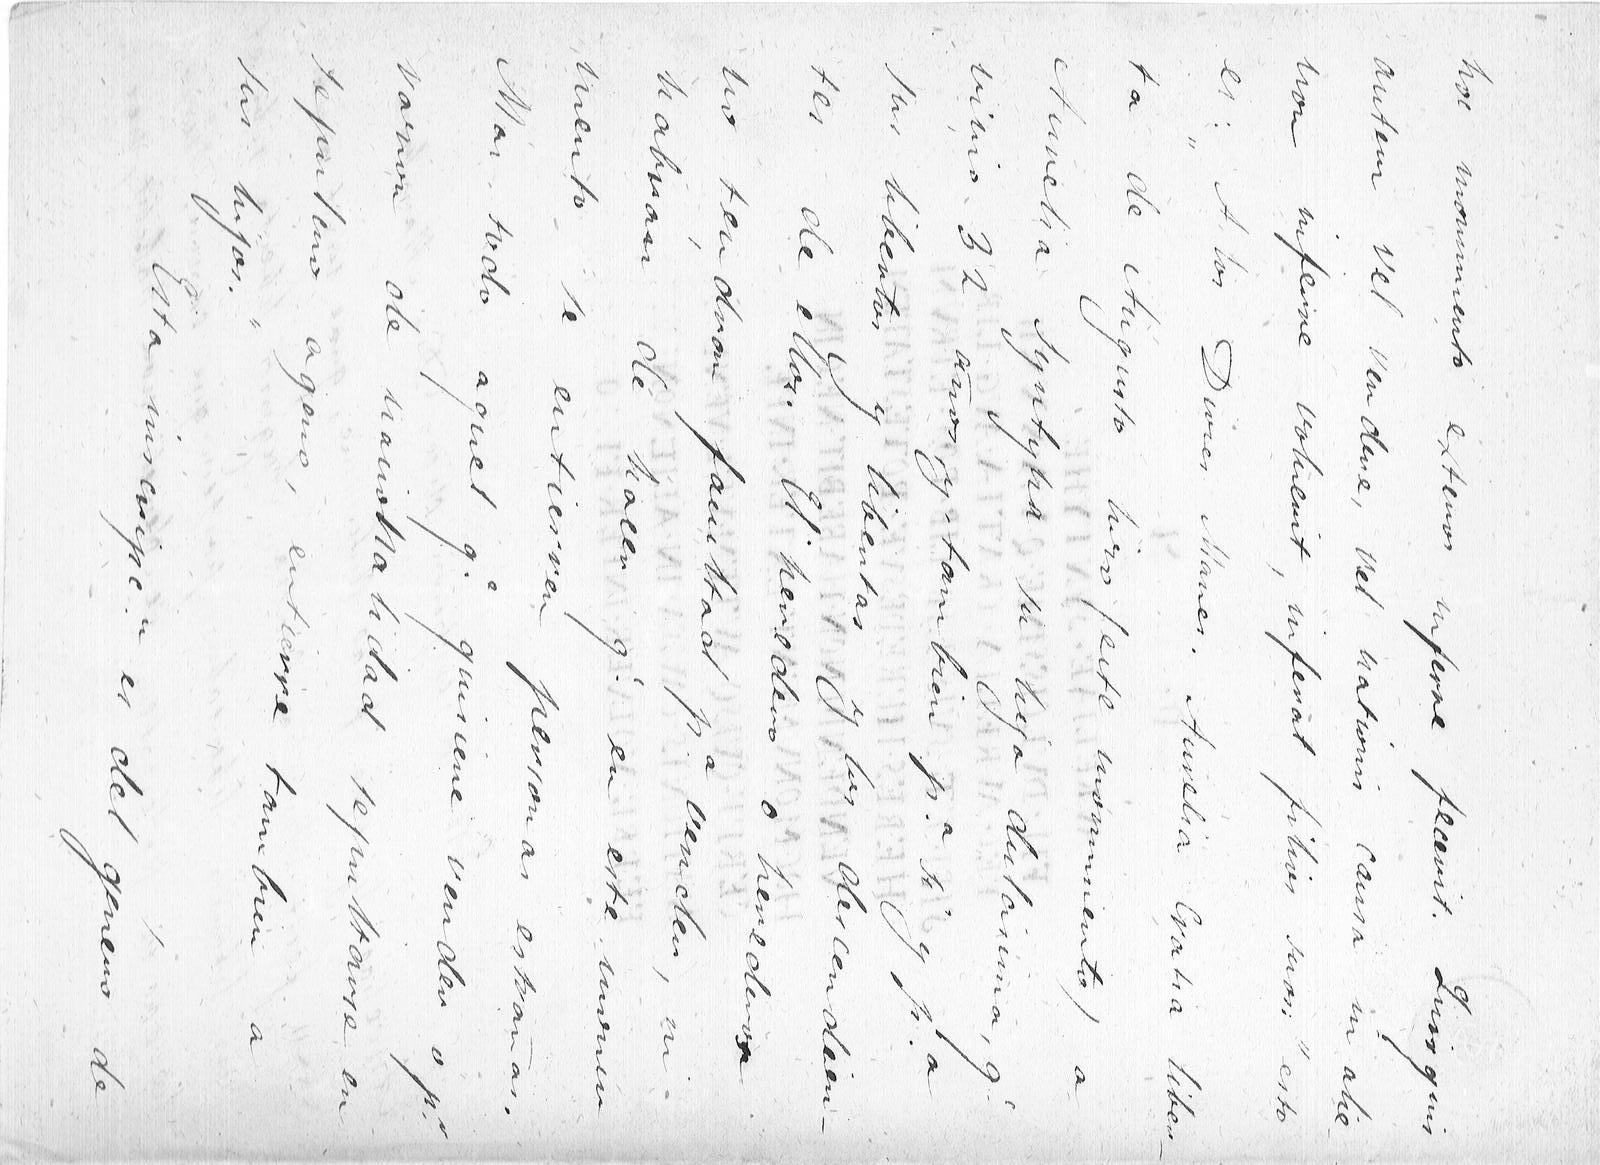 hoc monumento externos inferre fecerit. Quisquis
autem vel vendere, vel nationis causa in alie
non inferre voluerit, inferat filios suos:" esto
es: "A los Dioses Manes. Aurelia Gratia liber-
ta de Augusto hizo (este monumento) a
Aurelia Syntyha su hija dulcisima, q.e
vivio 32 años y tambien p.a si y p.a
sus libertos y libertas y los descendien-
tes de ellos. El heredero o herederos
no tendran facultad p.a vender, ni
habran de hacer q.e en este monu
mento se entierren personas estrañas.
Mas todo aquel q.e quisiere vender o p.r
razon de nacionalidad sepultarse en
sepulcro ageno, entierre tambien a
sus hijos."
Esta inscripc.n es del genero de